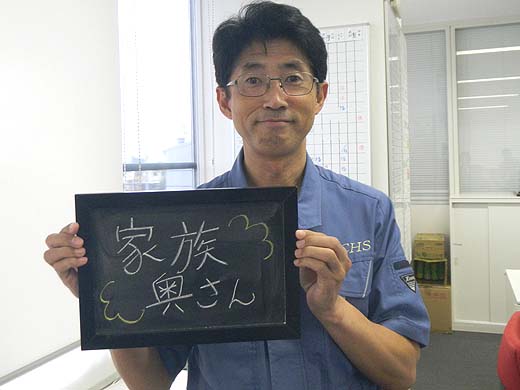 家族
奥さん
CHS